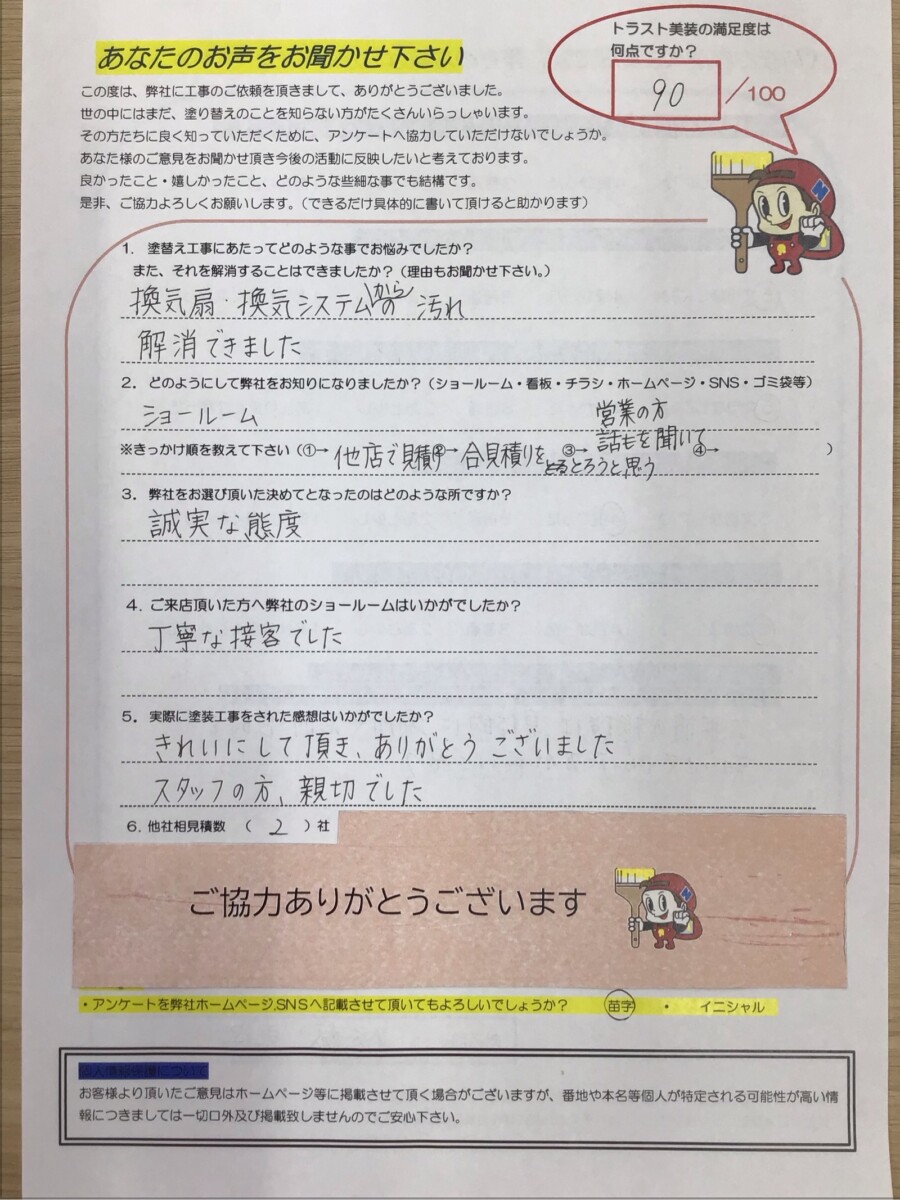 トラスト美装の満足度は
何点ですか?
90 /100
あなたのお声をお聞かせ下さい
この度は、弊社に工事のご依頼を頂きまして、ありがとうございました。
世の中にはまだ、塗り替えのことを知らない方がたくさんいらっしゃいます。
その方たちに良く知っていただくために、アンケートへ協力していただけないでしょうか。
あなた様のご意見をお聞かせ頂き今後の活動に反映したいと考えております。
良かったこと・嬉しかったこと、どのような些細な事でも結構です。
是非、ご協力よろしくお願いします。(できるだけ具体的に書いて頂けると助かります)
1. 塗替え工事にあたってどのような事でお悩みでしたか?
また、それを解消することはできましたか?(理由もお聞かせ下さい。)
換気扇・換気システムからの汚れ
解消できました
2. どのようにして弊社をお知りになりましたか?(ショールーム・看板・チラシ・ホームページ・SNS・ゴミ袋等)
ショールーム
※きっかけ順を教えて下さい(①→ 他店で見積り ②→ 合見積りをとろうと思う ③→ 営業の方話もを聞いて ④→ )
3. 弊社をお選び頂いた決めてとなったのはどのような所ですか?
誠実な態度
4. ご来店頂いた方へ弊社のショールームはいかがでしたか?
丁寧な接客でした
5. 実際に塗装工事をされた感想はいかがでしたか?
きれいにして頂き、ありがとうございました
スタッフの方、親切でした
6. 他社相見積数 ( 2 )社
ご協力ありがとうございます
・アンケートを弊社ホームページ.SNSへ記載させて頂いてもよろしいでしょうか? 苗字 ・ イニシャル
個人情報保護について
お客様より頂いたご意見はホームページ等に掲載させて頂く場合がございますが、番地や本名等個人が特定される可能性が高い情
報につきましては一切口外及び掲載致しませんのでご安心下さい。